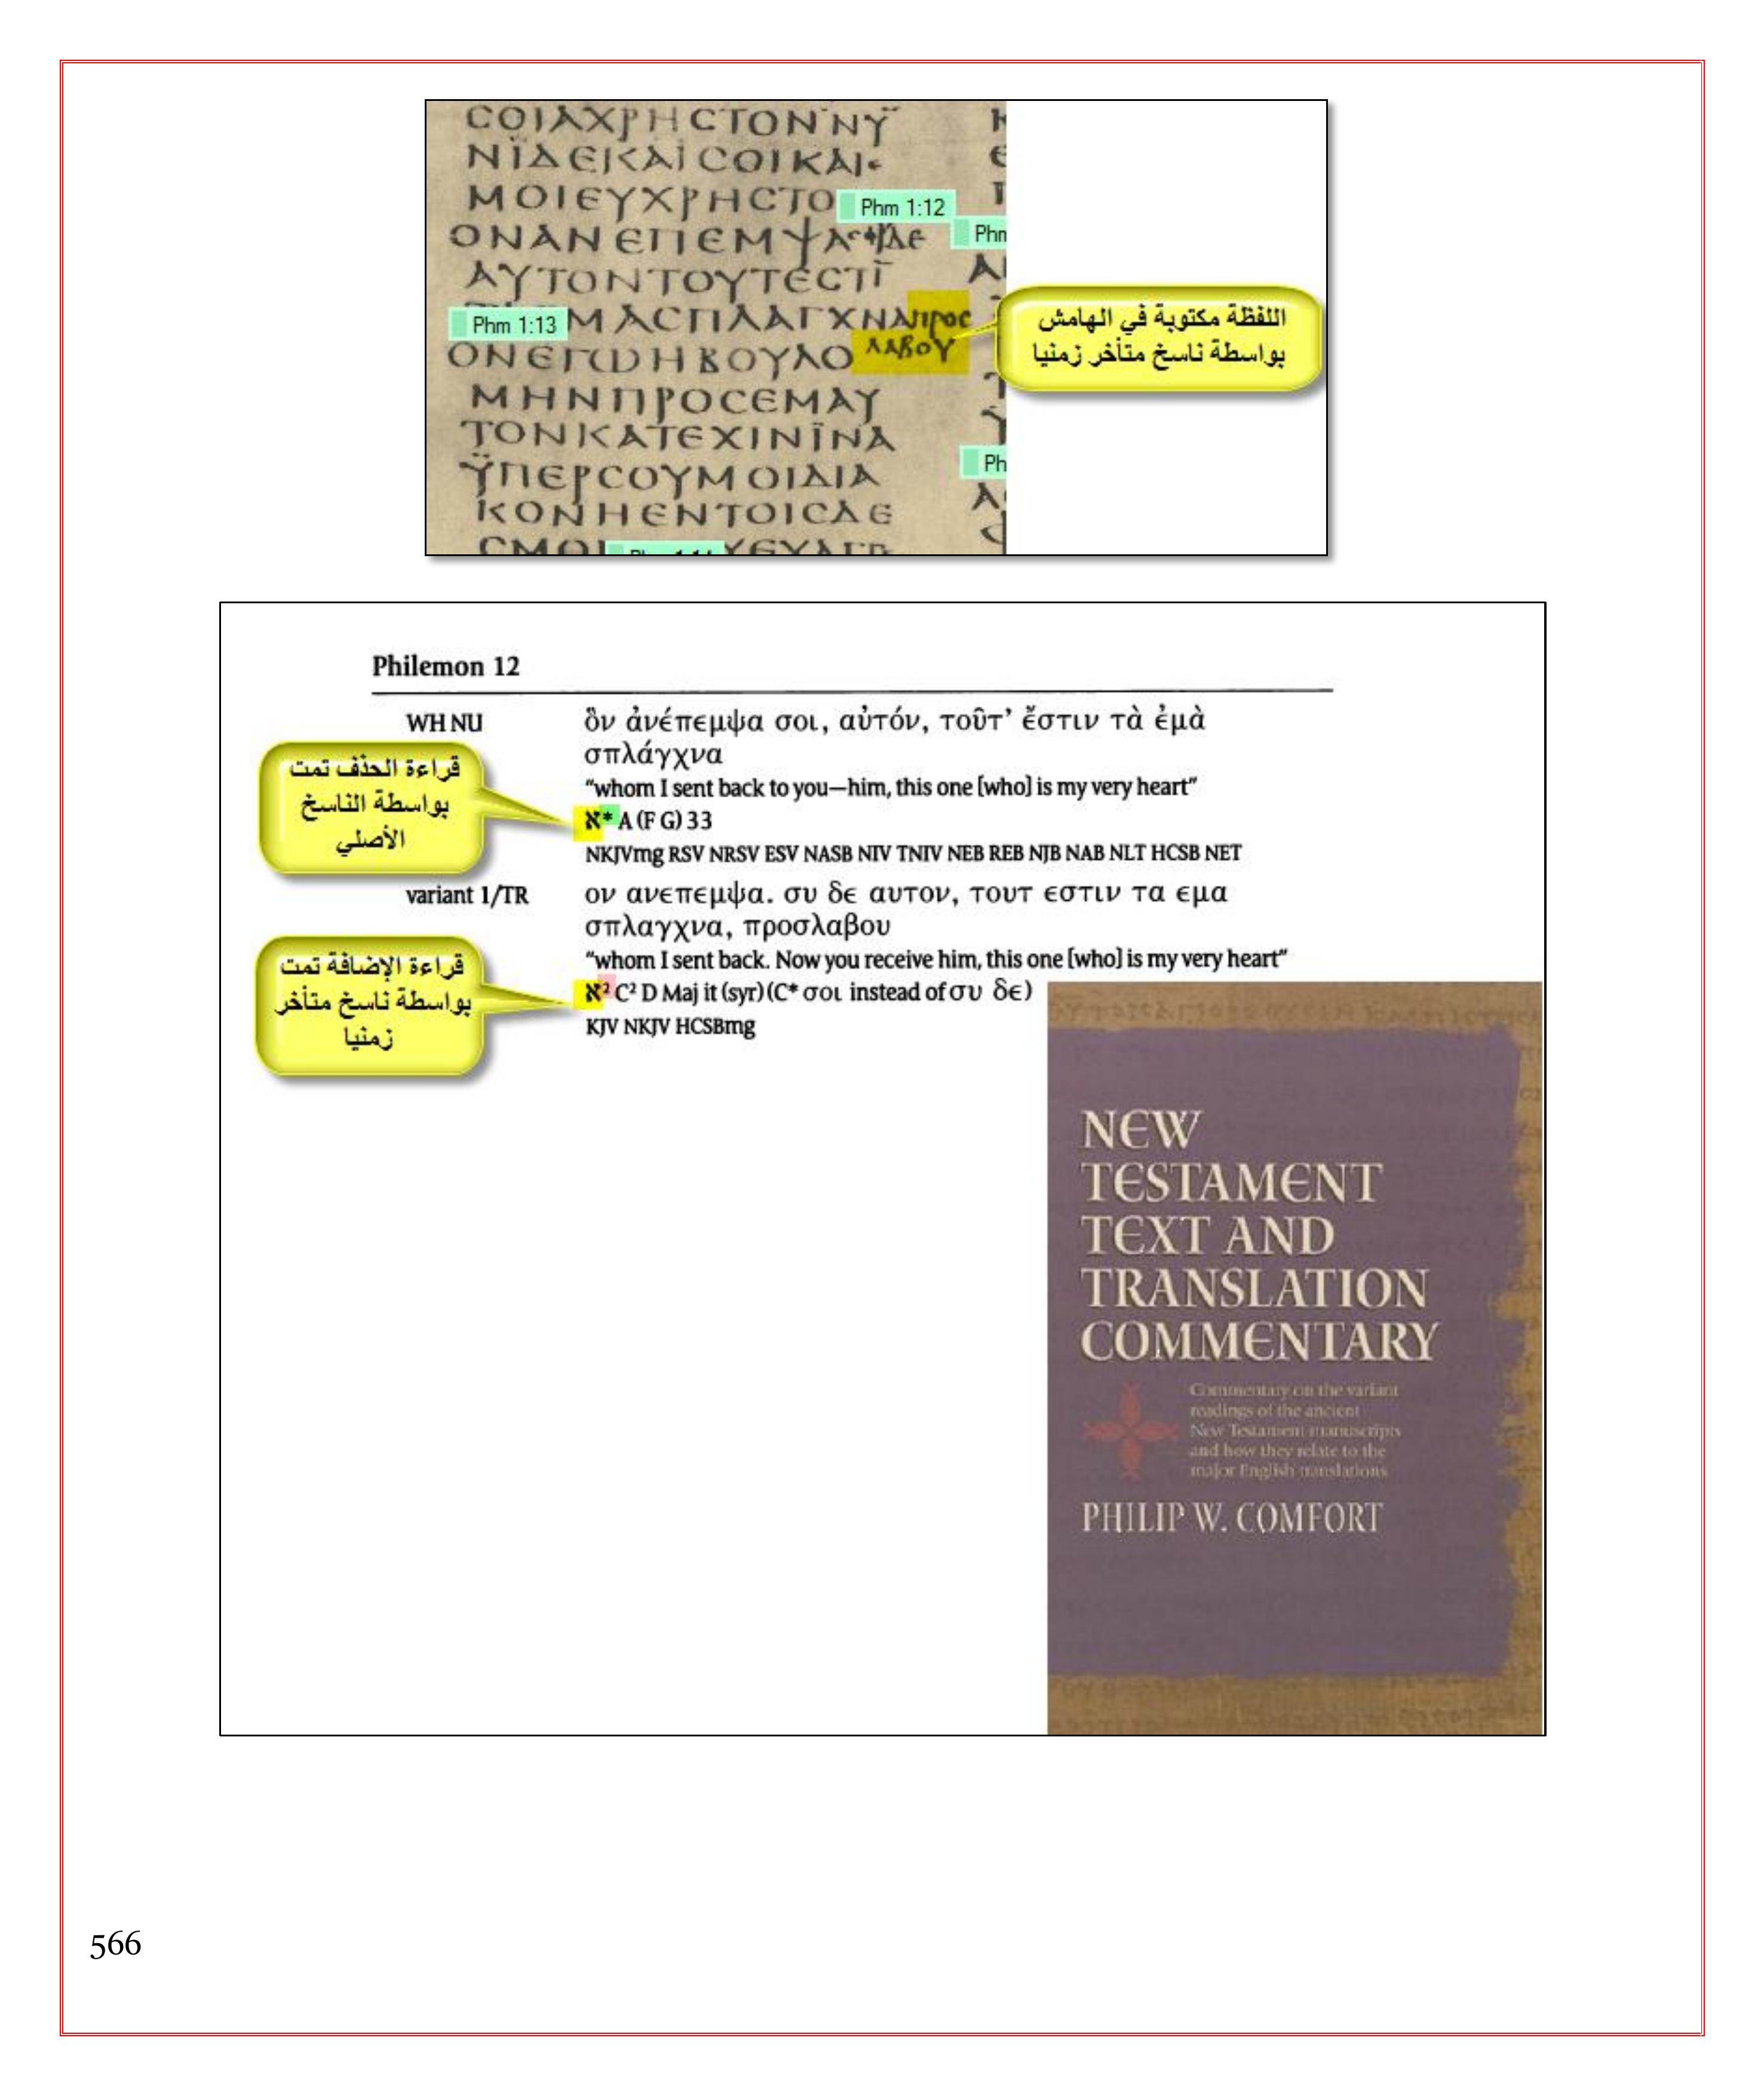 ϹΟΙΑΧΡΗϹΤΟΝΝΥ
ΝΪΔΕΚΑΙϹΟΙΚΑΙ
ΜΟΙΕΥΧΡΗϹΤΟ
Phm 1:12
ΟΝΑΝΕΠΕΜΨΑ
Phm
ΑΥΤΟΝΤΟΥΤΕϹΤΙ
Phm 1:13
ΜΑϹΠΛΑΓΧΝΑ
ΠΡΟϹ
ΛΑΒΟΥ
اللفظة مكتوبة في الهامش
بواسطة ناسخ متأخر زمنيا
ΟΝΕΓΩΗΒΟΥΛΟ
ΜΗΝΠΡΟϹΕΜΑΥ
ΤΟΝΚΑΤΕΧΙΝΪΝΑ
ΫΠΕΡϹΟΥΜΟΙΔΙΑ
Ph
ΚΟΝΗΕΝΤΟΙϹΔΕ
Philemon 12
WH NU
ὃν ἀνέπεμψα σοι, αὐτόν, τοῦτ’ ἔστιν τὰ ἐμὰ
σπλάγχνα
“whom I sent back to you—him, this one [who] is my very heart”
א* A (F G) 33
NKJVmg RSV NRSV ESV NASB NIV TNIV NEB REB NJB NAB NLT HCSB NET
قراءة الحذف تمت
بواسطة الناسخ
الأصلي
variant 1/TR
ον ανεπεμψα. συ δε αυτον, τουτ εστιν τα εμα
σπλαγχνα, προσλαβου
“whom I sent back. Now you receive him, this one [who] is my very heart”
א² C² D Maj it (syr) (C* σοι instead of συ δε)
KJV NKJV HCSBmg
قراءة الإضافة تمت
بواسطة ناسخ متأخر
زمنيا
NEW
TESTAMENT
TEXT AND
TRANSLATION
COMMENTARY
Commentary on the variant
readings of the ancient
New Testament manuscripts
and how they relate to the
major English translations
PHILIP W. COMFORT
566